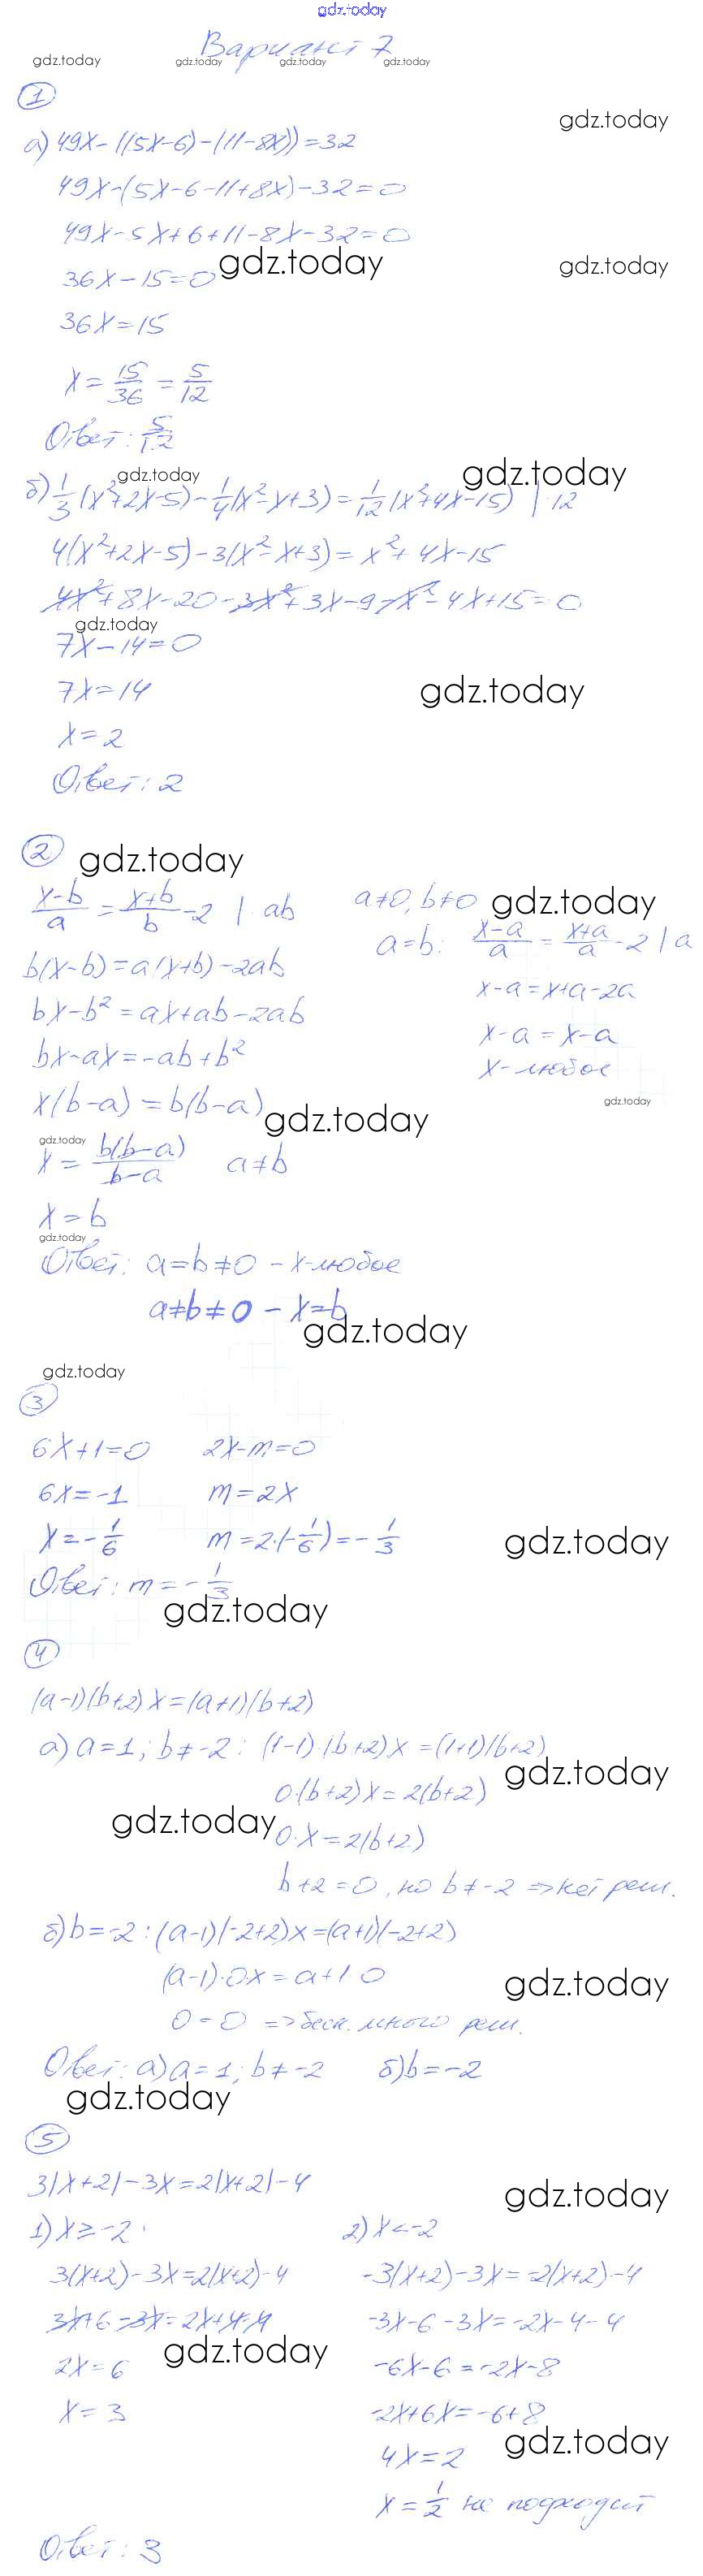 gdz.today
Вариант 7
gdz.today gdz.today gdz.today gdz.today
1
gdz.today
а) 49x-((5x-6)-(11-8x))=32
49x-(5x-6-11+8x)-32=0
49x-5x+6+11-8x-32=0
gdz.today gdz.today
36x-15=0
36x=15
x=15/36=5/12
Ответ: 5/12
gdz.today gdz.today
б) 1/3(x²+2x-5)-1/4(x²-x+3)=1/12(x²+4x-15) |·12
4(x²+2x-5)-3(x²-x+3)=x²+4x-15
4x²+8x-20-3x²+3x-9-x²-4x+15=0
gdz.today
7x-14=0
7x=14
gdz.today
x=2
Ответ: 2
2 gdz.today
(x-b)/a=(x+b)/b-2 |·ab
b(x-b)=a(x+b)-2ab
bx-b²=ax+ab-2ab
bx-ax=-ab+b²
x(b-a)=b(b-a)
gdz.today
gdz.today
x=b(b-a)/(b-a) a≠b
x=b
gdz.today
a≠0, b≠0 gdz.today
a=b: (x-a)/a=(x+a)/a-2 |·a
x-a=x+a-2a
x-a=x-a
x-любое
gdz.today
Ответ: a=b≠0 - x-любое
a≠b≠0 - x=b
gdz.today
gdz.today
3
6x+1=0 2x-m=0
6x=-1 m=2x
x=-1/6 m=2·(-1/6)=-1/3
gdz.today
Ответ: m=-1/3
gdz.today
4
(a-1)(b+2)x=(a+1)(b+2)
а) a=1; b≠-2: (1-1)·(b+2)x=(1+1)(b+2)
gdz.today
0·(b+2)x=2(b+2)
gdz.today
0·x=2(b+2)
b+2=0, но b≠-2 =>нет реш.
б) b=-2: (a-1)(-2+2)x=(a+1)(-2+2)
(a-1)·0x=a+1·0
gdz.today
0=0 =>беск. много реш.
Ответ: а) a=1; b≠-2 б) b=-2
gdz.today
5
3|x+2|-3x=2|x+2|-4
gdz.today
1) x≥-2:
3(x+2)-3x=2(x+2)-4
3x+6-3x=2x+4-4
gdz.today
2x=6
x=3
2) x<-2
-3(x+2)-3x=-2(x+2)-4
-3x-6-3x=-2x-4-4
-6x-6=-2x-8
-2x+6x=-6+8
gdz.today
4x=2
x=1/2 не подходит
Ответ: 3